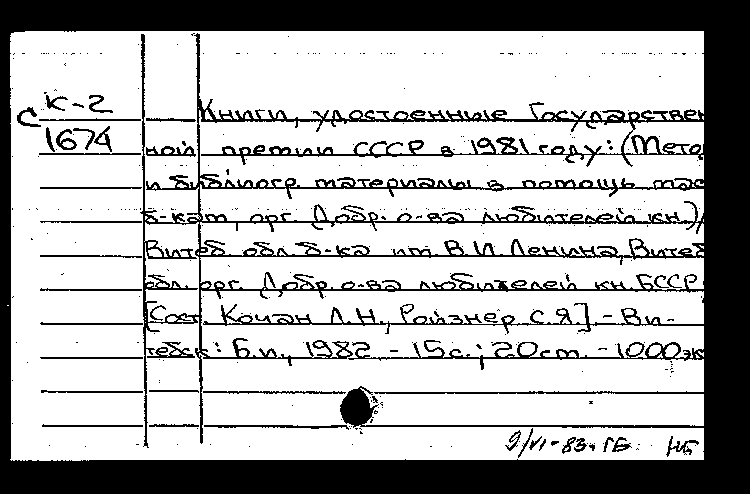 С К-2
1674
Книги, удостоенные Государствен
ной премии СССР в 1981 году: (Мето
и библиогр. материалы в помощь мас
б-кам, орг. Добр. о-ва любителей кн.)/
Витеб. обл. б-ка им. В.И. Ленина, Витеб
обл. орг. Добр. о-ва любителей кн. БССР;
[Сост. Кочан Л.Н., Ройзнер С.Я.]. - Ви-
тебск: Б.и., 1982 - 15с.; 20см. - 1000эк
9/VI-83. ГБ. НБ